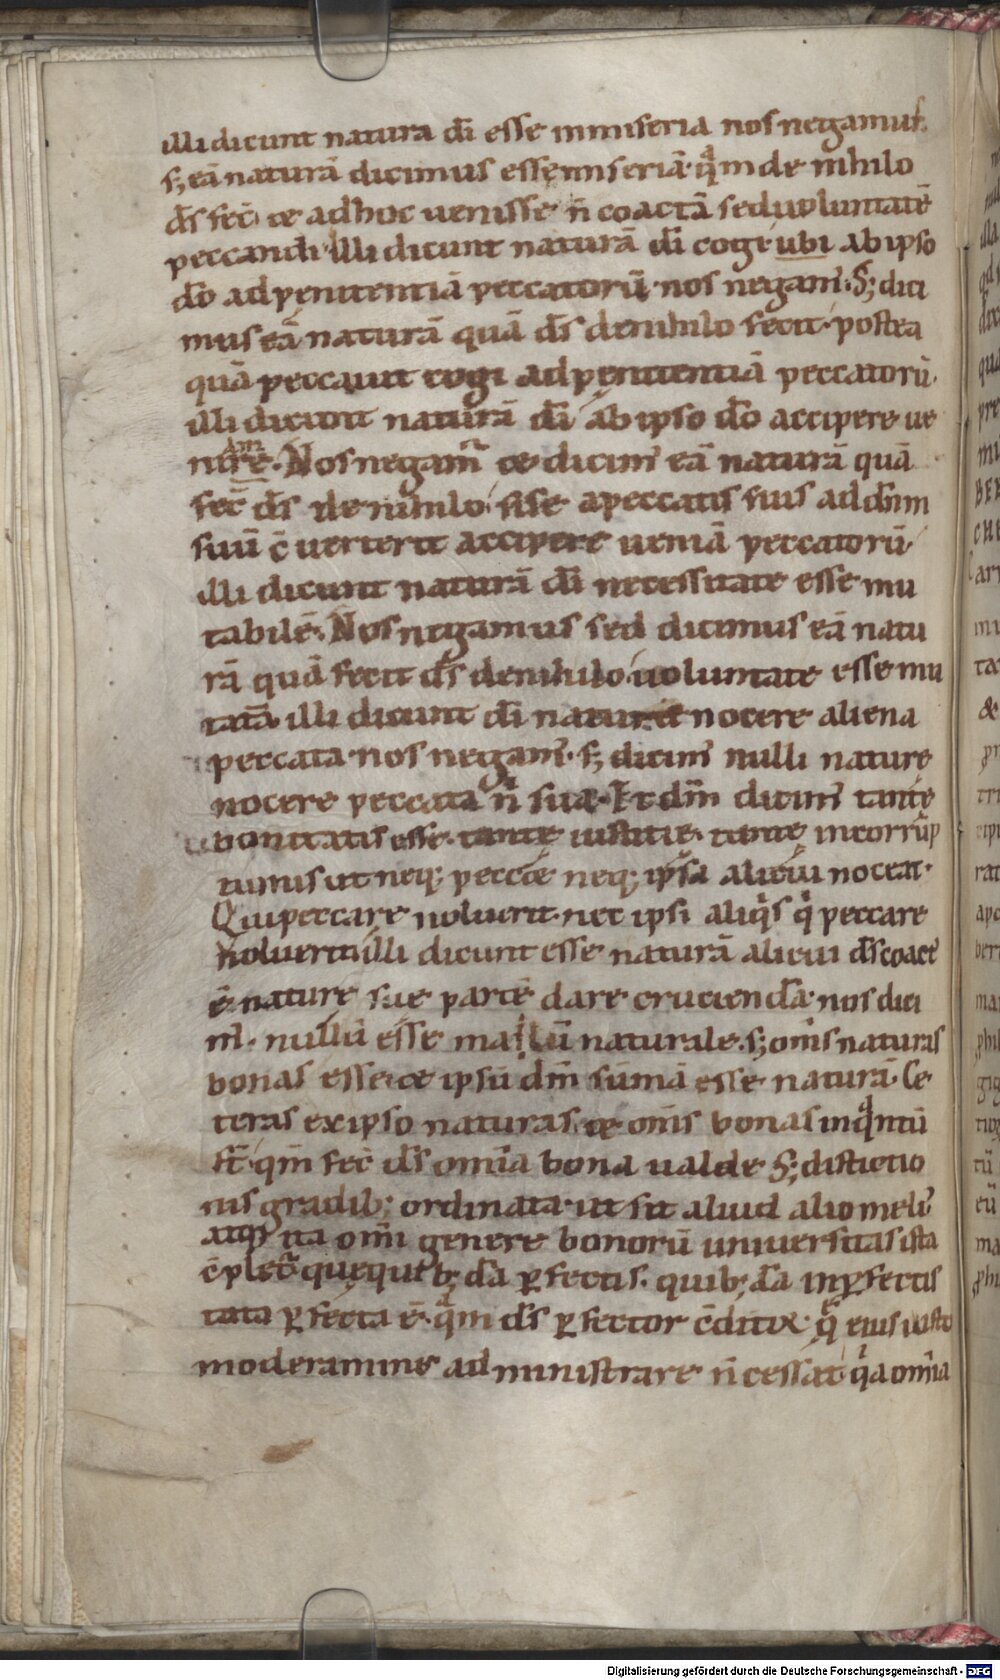 illi dicunt natura dī esse in miseria nos negamus.
s; eā naturā dicimus esse miseriā q̄m de nihilo
ds̄ fec̄ ⁊ce adhoc uenisse n̄ coactā sed uoluntatē
peccandi illi dicunt naturā dī cogi ubi ab ipso
dō ad penitentiā peccatorū nos negam'. S; dici
mus eā naturā quā ds̄ de nihilo fecit postea
quā peccauit cogi ad penitentiā peccatorū.
illi dicunt naturā dī ab ipso dō accipere ue
nire. Nos negam' ce dicim' eā naturā quā
fec̄ ds̄ de nihilo si se a peccatis suis ad dn̄m
suū c̄uerterit accipere ueniā peccatorū.
illi dicunt naturā dī necessitate esse mu
tabilē. Nos negamus sed dicimus eā natu
rā quā fecit ds̄ de nihilo uoluntate esse mu
tatā illi dicunt dī nature nocere aliena
peccata nos negam'. s; dicim' nulli nature
nocere peccata n̄ sua. Et dm̄ dicim' tantę
bonitatis esse. tantę iustitie. tantę incorrūp
tionis ut neq; peccet neq; ipsa alicui noceat.
Qui peccare noluerit. nec ipsi aliq's q' peccare
uoluerit illi dicunt esse naturā alicui ds̄ coact'
ē nature sue partē dare cruciendā nos dici
m'. nullū esse malū naturale. s; om̄s naturas
bonas esse ce ipsū dm̄ sūmā esse naturā. Ce
teras ex ipso naturas ce om̄s bonas inq̄ntū
st̄ q̄m fec̄ ds̄ om̄ia bona ualde S; distictio
nis gradib; ordinata ut sit aliud alio meli'
atq; ita om̄i genere bonorū uniuersitas ista
c̄pletur que quib; dā p̄fectis. quib; dā inp̄fectis
tata p̄fecta ē. q̄m ds̄ p̄fector c̄ditor q̄ eius iusto
moderamine administrare n̄ cessat q'a om̄ia
Digitalisierung gefördert durch die Deutsche Forschungsgemeinschaft - DFG